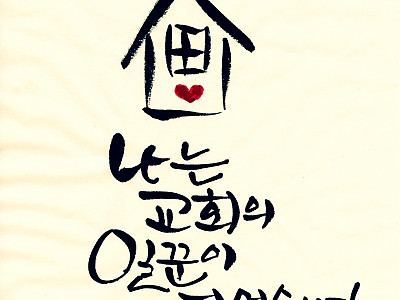 나는
교회의
일꾼이